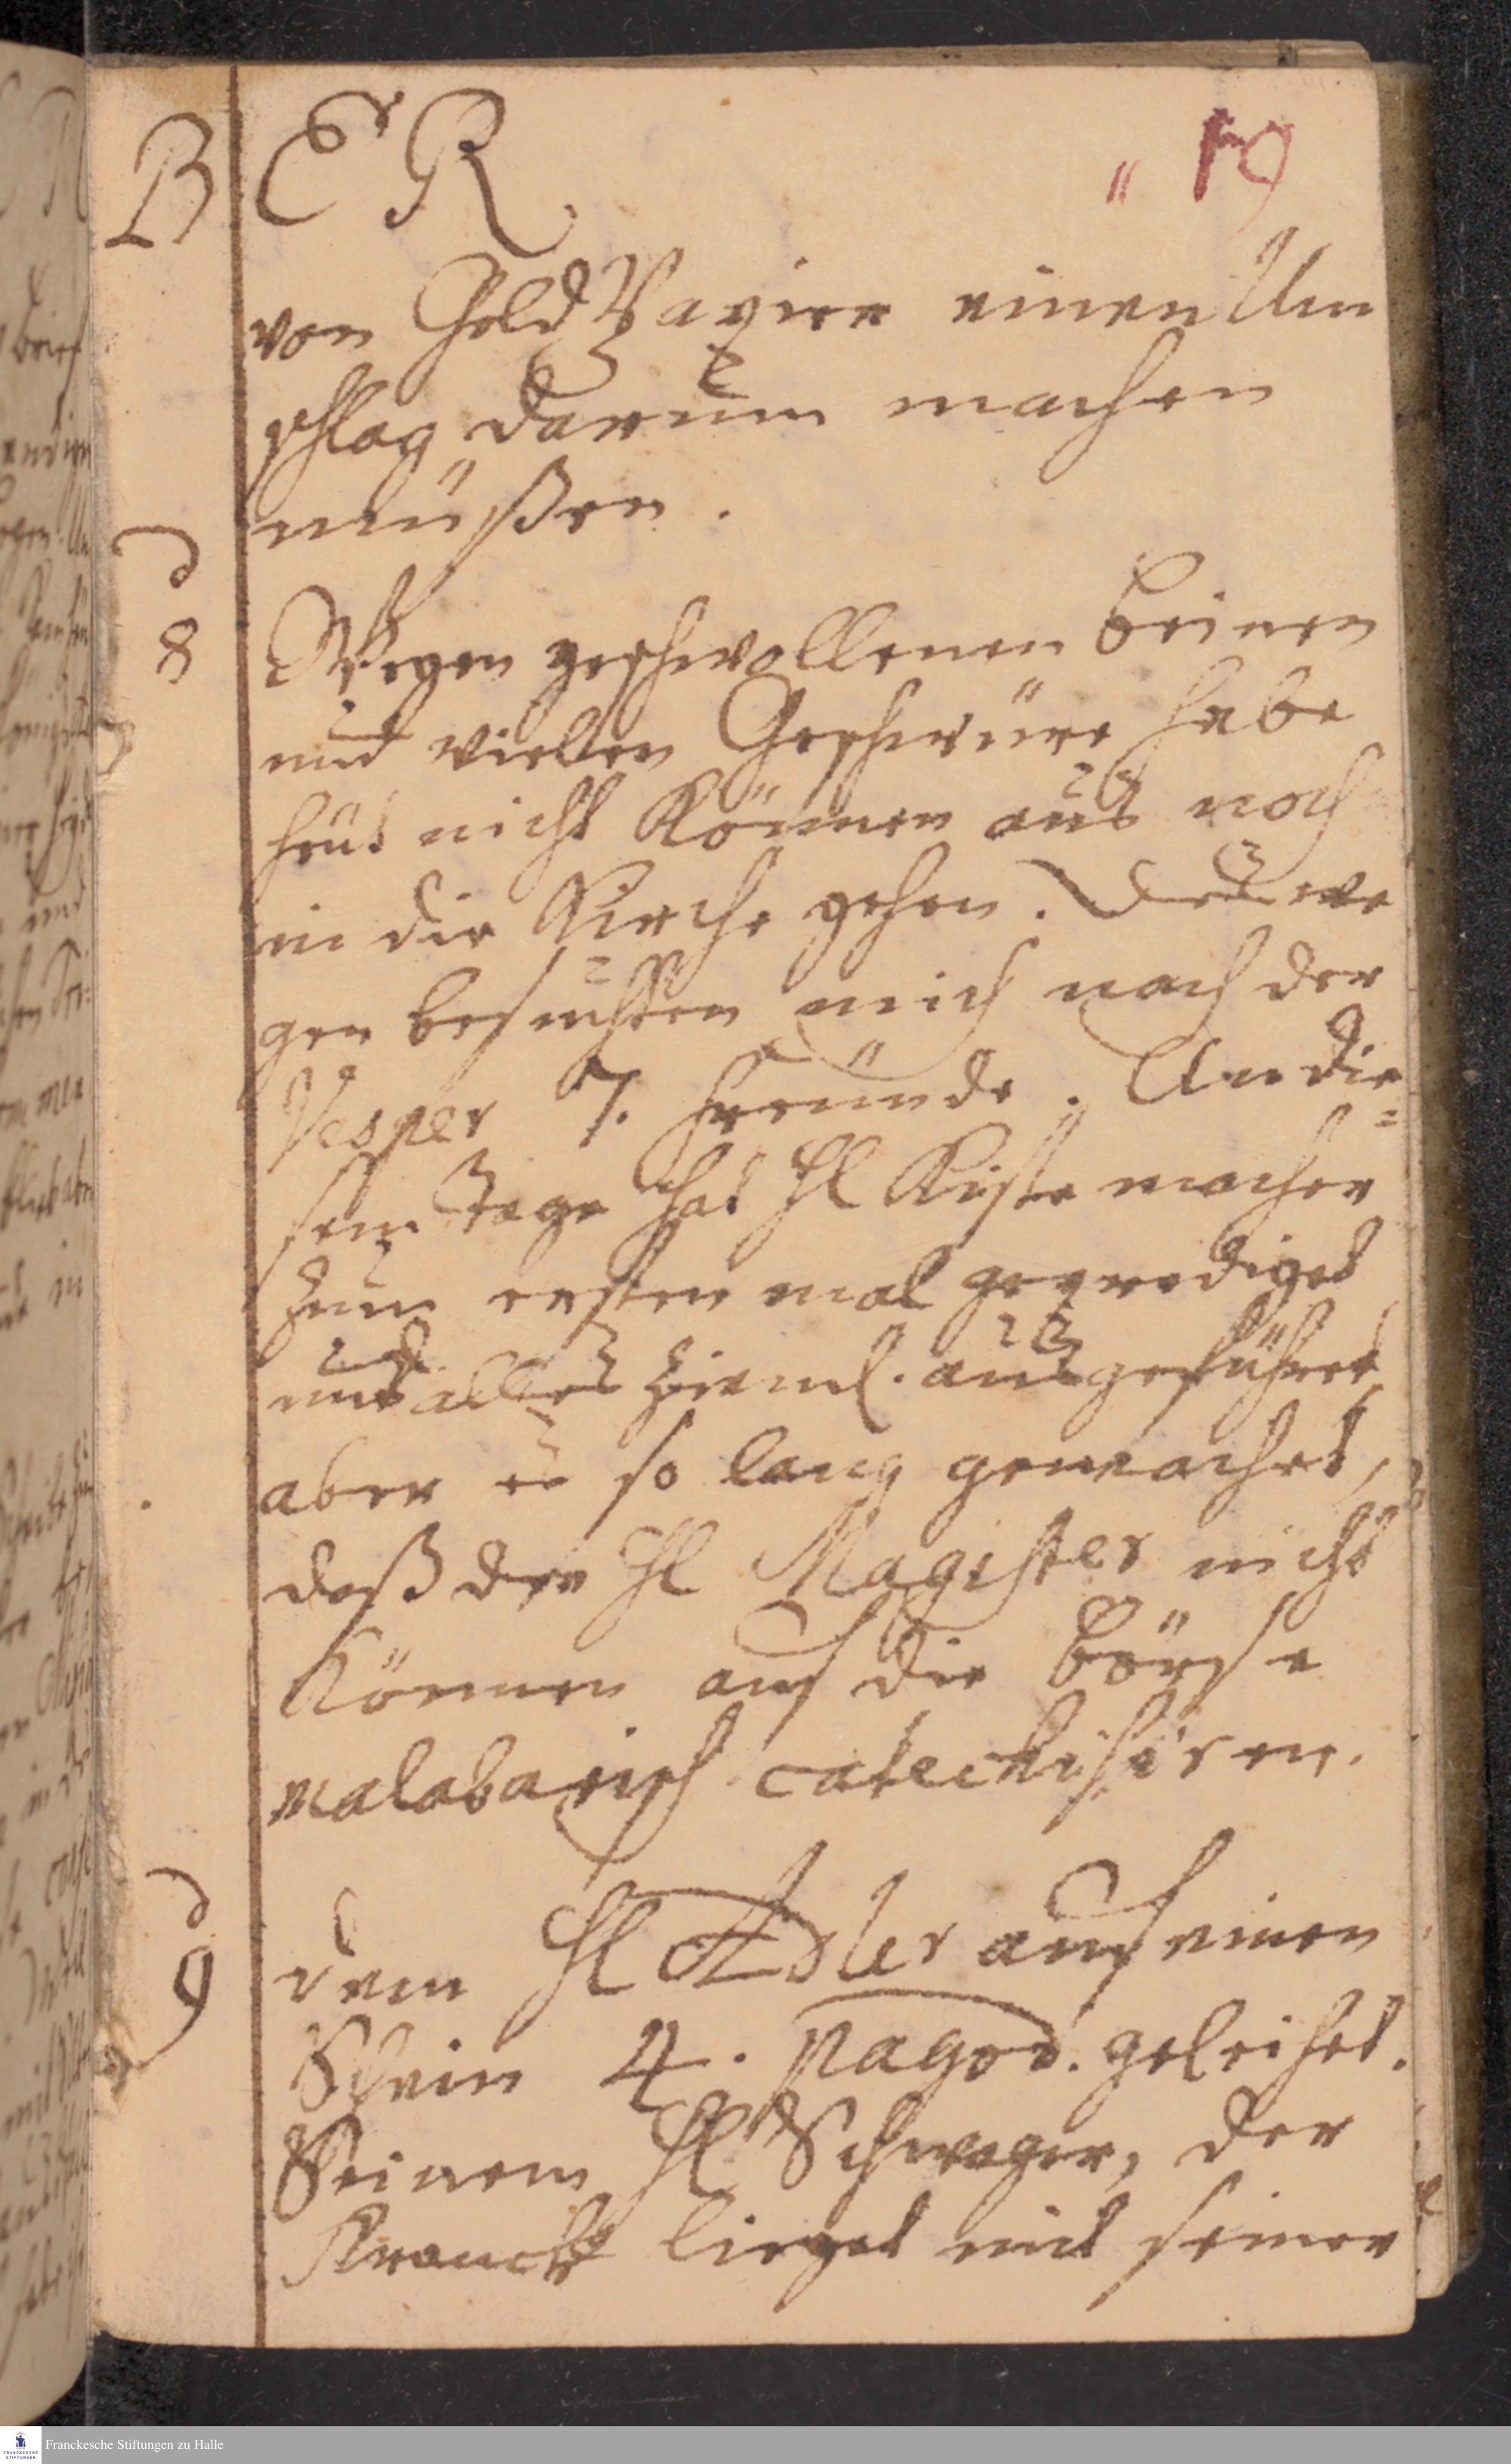 B E R
" 19
von Gold Papier einen Um
schlag darum machen
müßen.
8
Wegen geschwollenen Beinen
und vielen Geschwüre habe
heut nicht können aus noch
in die Kirche gehen. Deswe
gen besuchten mich nach der
Vesper 7. Freunde. An die=
sem Tage hat H Kistemacher
zum ersten mal geprediget
und alles zieml. ausgeführet,
aber es so lang gemachet,
daß der H Magister nicht
können auf die Börse
malabarisch catechisiren.
9
dem H Adler auf einen
Schein 4. pagod. geleihet.
Seinem H Schwager, der
Kranck lieget mit seiner
Franckesche Stiftungen zu Halle